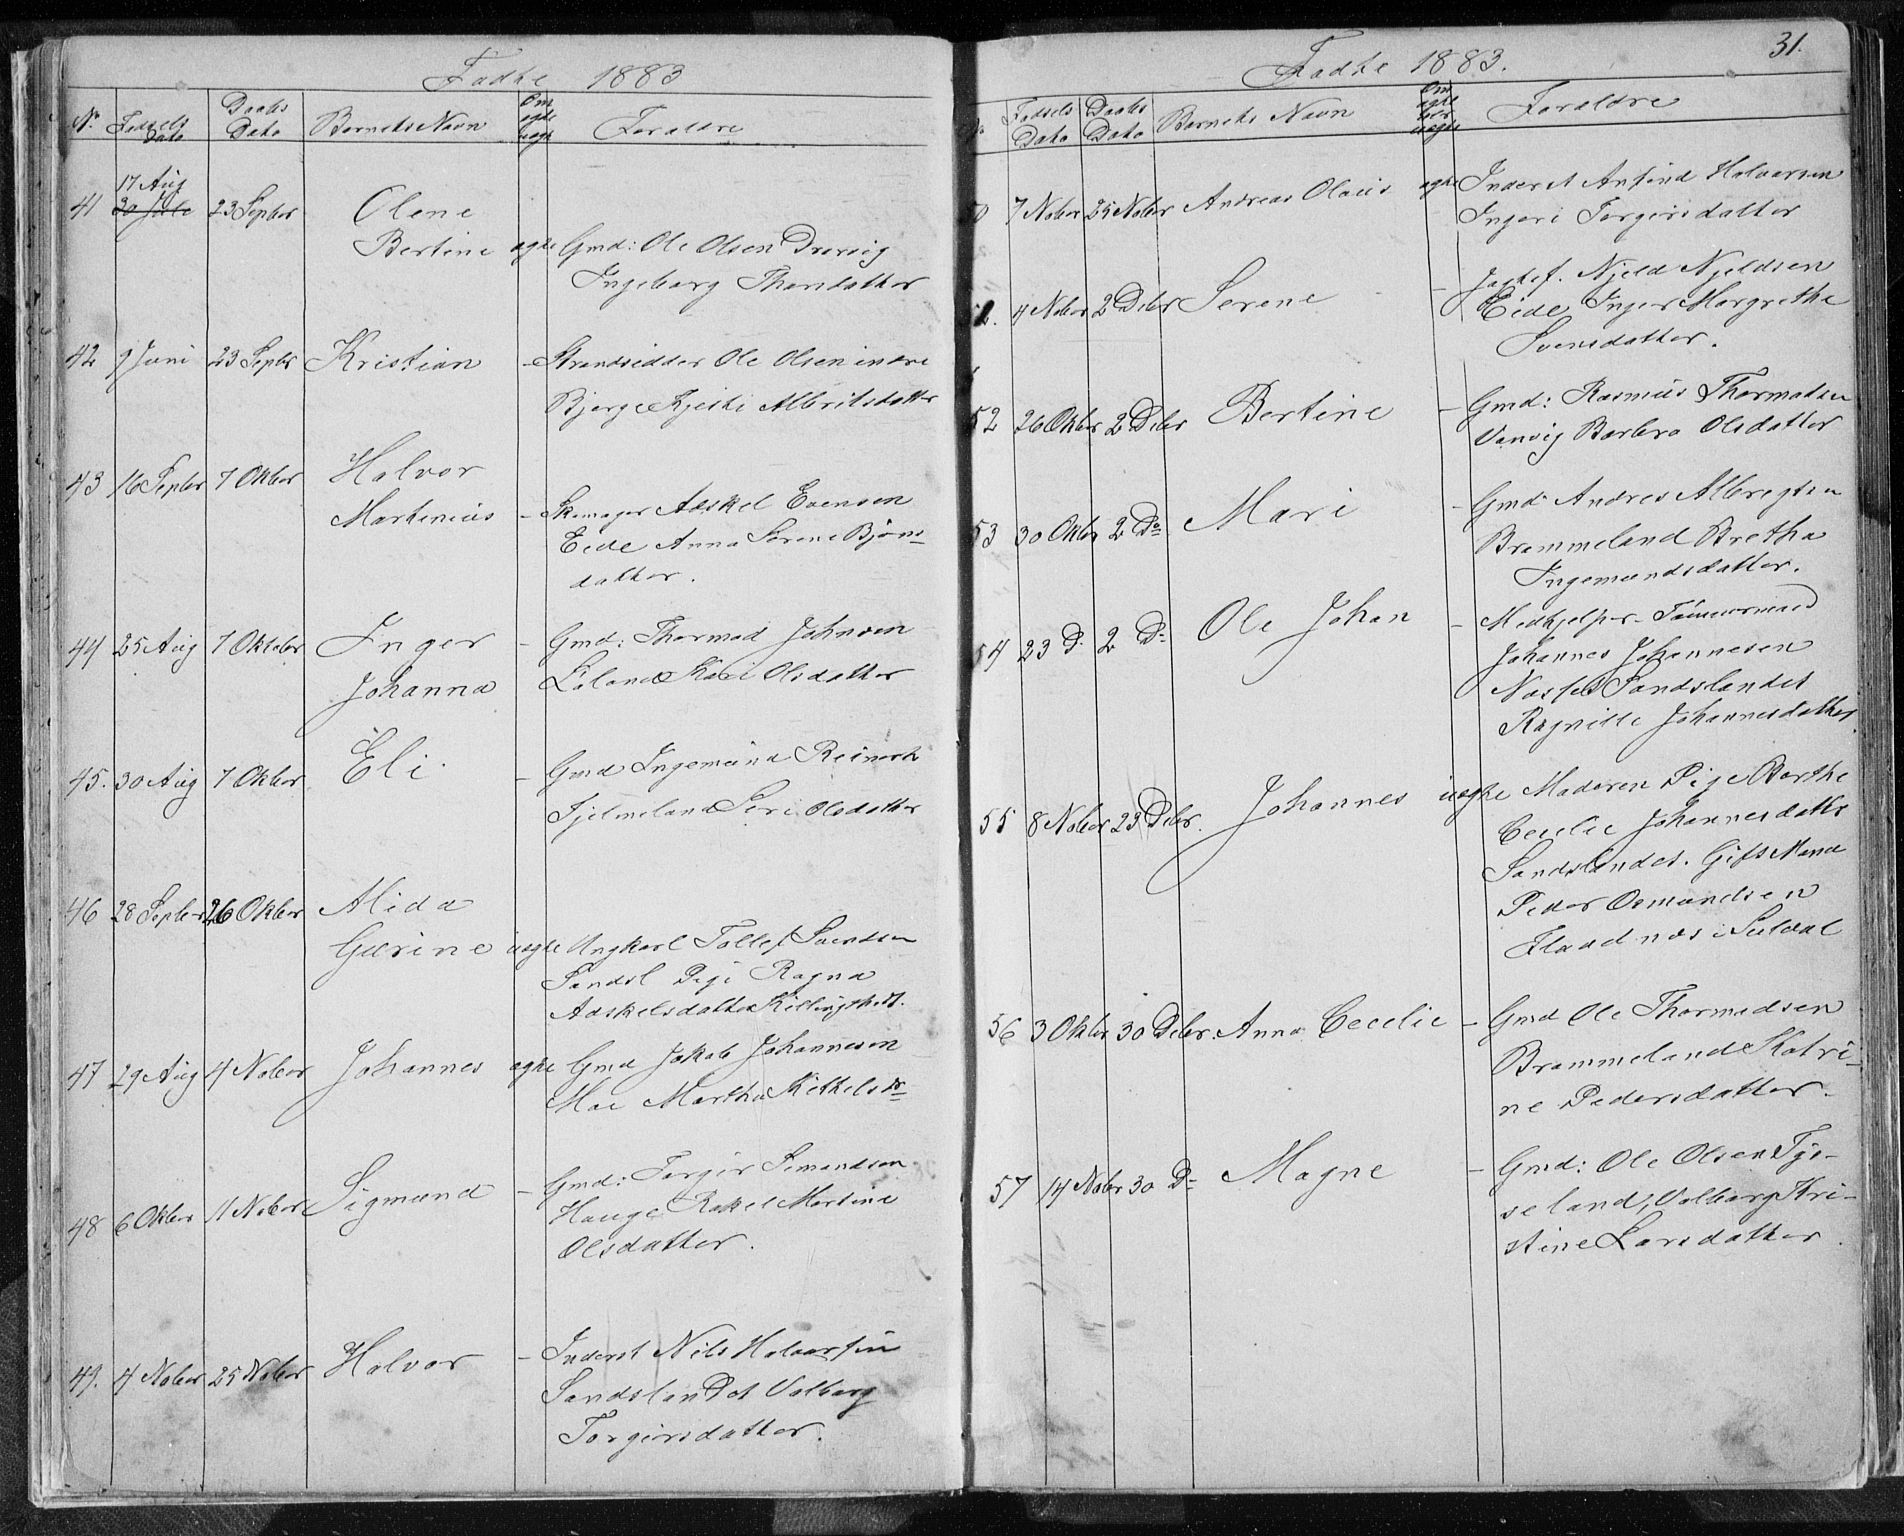 Fødte 1883
No Fødsels Dato Daabs Dato Barnets Navn Om ægte uægte Forældre
17 Aug
41 30 Juli 23 Septbr Olene
Bertine ægte Gmd: Ole Olsen Drarvig
Ingeborg Thorsdatter
42 9 Juni 23 Septbr Kristian - Strandsidder Ole Olsen indre
Bjerge Kjesti Albritsdatter
43 16 Septbr 7 Oktbr Halvor
Martinius - Skomager Adskel Evensen
Eide Anna Serene Bjøns-
datter.
44 25 Aug 7 Oktobr Inger - Gmd: Thormod Johnsen
Johanna Løland Kari Olsdatter
45. 30 Aug 7 Oktbr Eli - Gmd Ingemund Reinert
Fjelmeland Siri Olsdatter
46 28 Septbr 26 Oktbr Alida
Gurine uægte Ungkarl Tollef Svendsen
Sandsl Pige Ragna
Adskelsdatter Killingtheit.
47 29 Aug 4 Nobor Johannes ægte Gmd Jakob Johannesen
Moe Martha Kithelsdr
48 6 Oktbr 11 Nobor Sigmund - Gmd: Torgir Simondsen
Hauge Rakel Martine
Olsdatter.
49. 4 Nobor 25 Nobor Halvor - Inderst Nils Halvorsen
Sandslandet Valborg
Torgersdatter.
31.
Fødte 1883.
No Fødsels Dato Daabs Dato Barnets Navn Om ægte eler uægte Forældre
50 7 Nobor 25 Nobor Andreas Olaus ægte Inderst Anfind Halvorsen
Ingeri Torgirsdatter
51. 4 Nobor 2 Debr Serene - Jagtsf. Njeld Njeldsen
Eide, Inger Margrethe
Svensdatter.
52 26 Oktbr 2 Debr Bertine - Gmd: Rasmus Thormodsen
Vanvig Barbro Olsdatter
53 30 Oktbr 2 Do Mari - Gmd Andres Albregtsen
Brommeland Bretha
Ingemundsdatter.
54 23 D. 2 D- Ole Johan - Medhjelper Tømermand
Johannes Johannesen
Næsse Sandslandet
Ragnille Johannesdatter
55 8 Nobor 23 Debr. Johannes uægte Moderen Pige Berthe
Cecilie Johannesdatter
Sandslandet. Gift Mand
Peder Osmundsen
Flaadnæs i Suldal
56 3 Oktbr 30 Debr. Anna Cecelie - Gmd Ole Thormodsen
Brommeland Katri-
ne Pedersdatter.
57 14 Nobr 30 D- Magne - Gmd: Ole Olsen Tys-
seland, Valborg Kri-
stine Larsdatter.